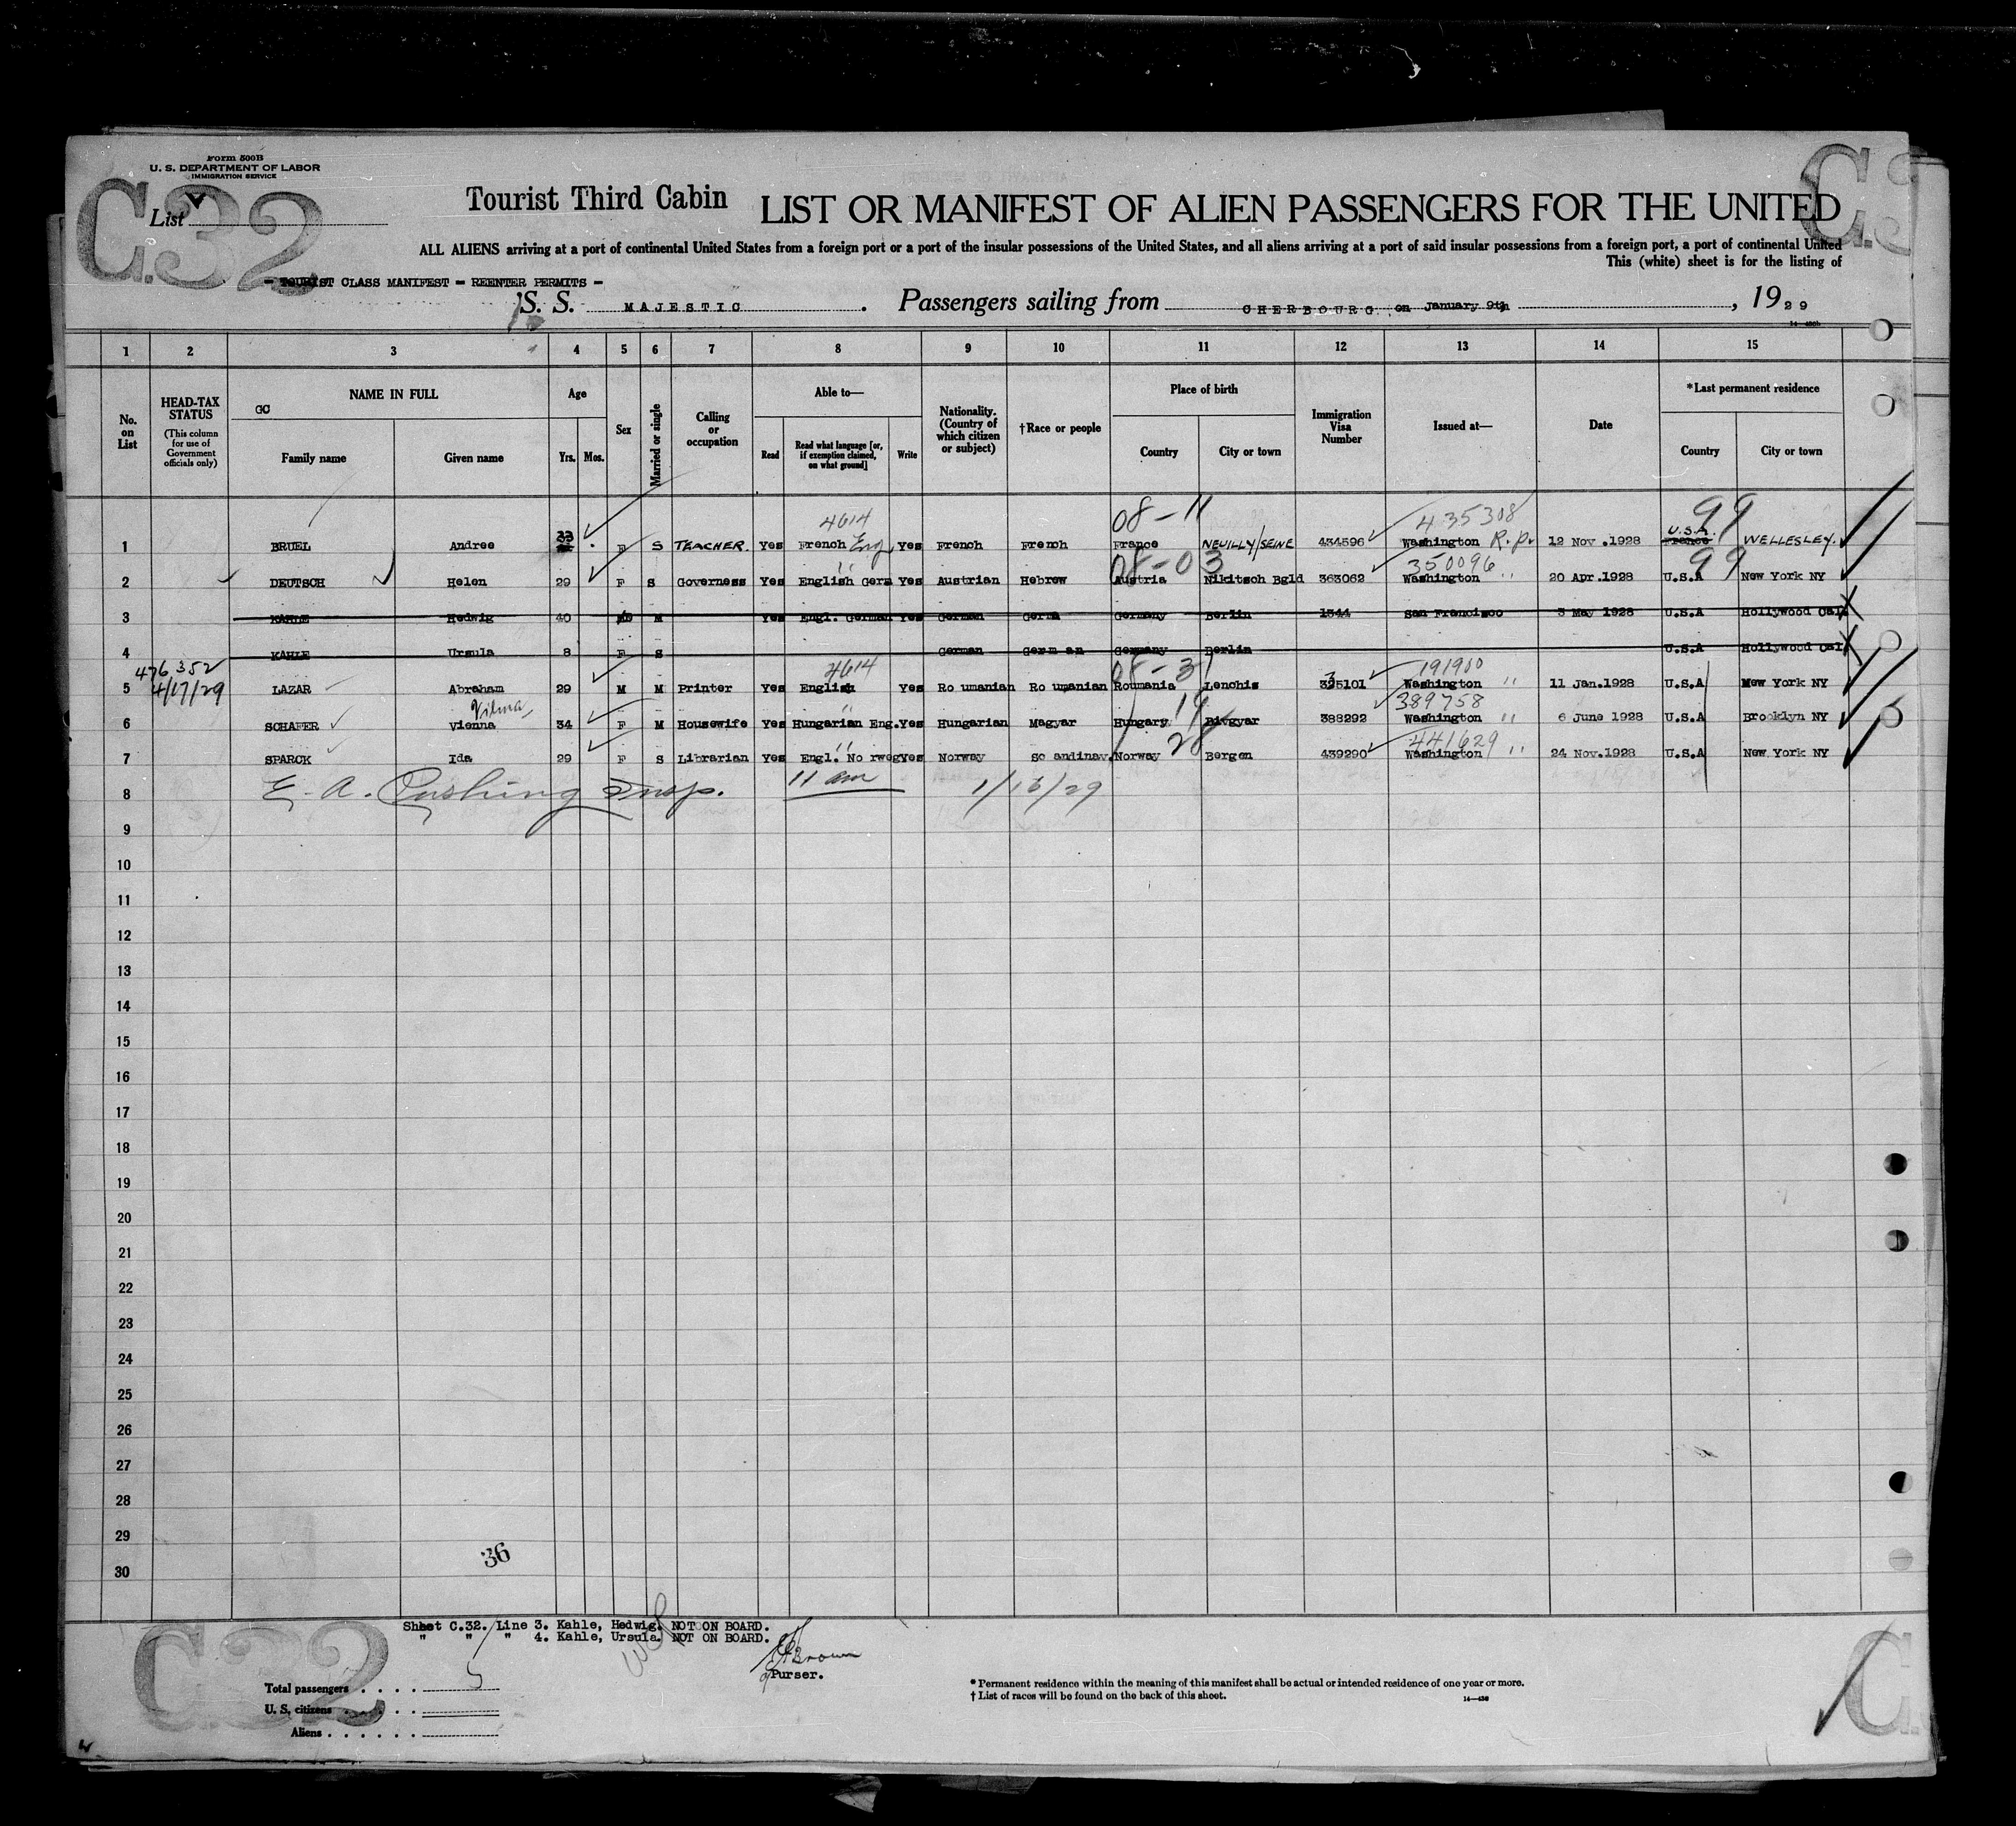 Form 500B
U. S. DEPARTMENT OF LABOR
IMMIGRATION SERVICE
C.32
C.3
List
Tourist Third Cabin LIST OR MANIFEST OF ALIEN PASSENGERS FOR THE UNITED
ALL ALIENS arriving at a port of continental United States from a foreign port or a port of the insular possessions of the United States, and all aliens arriving at a port of said insular possessions from a foreign port, a port of continental United
This (white) sheet is for the listing of
- TOURIST CLASS MANIFEST - REENTER PERMITS -
S. S. MAJESTIC. Passengers sailing from CHERBOURG. on January 9th, 1929
1 2 3 4 5 6 7 8 9 10 11 12 13 14 15
No. on List
HEAD-TAX STATUS (This column for use of Government officials only)
GC
NAME IN FULL
Family name Given name
Age
Yrs. Mos.
Sex
Married or single
Calling or occupation
Able to—
Read Read what language [or, if exemption claimed, on what ground] Write
Nationality. (Country of which citizen or subject)
†Race or people
Place of birth
Country City or town
Immigration Visa Number
Issued at—
Date
*Last permanent residence
Country City or town
4614 08-11 435308 99
1 BRUEL Andree 33 F S TEACHER. Yes French Eng. Yes French French France NEUILLY/SEINE 434596 Washington R.P. 12 Nov .1928 U.S.A. France WELLESLEY.
" 08-03 350096 99
2 DEUTSCH Helen 29 F S Governess Yes English Germ Yes Austrian Hebrew Austria Nikitsch Bgld 363062 Washington " 20 Apr.1928 U.S.A New York NY
3 KAHLE Hedwig 40 M Yes Engl. German Yes German Germ Germany Berlin 1344 San Francisco 3 May 1928 U.S.A Hollywood Cal
4 KAHLE Ursula 8 F S German German Germany Berlin U.S.A Hollywood Cal
476352 4614 08-31 191900
4/17/29
5 LAZAR Abraham 29 M M Printer Yes English Yes Roumanian Roumanian Roumania Lenchis 335101 Washington " 11 Jan.1928 U.S.A New York NY
Vilma, " 19 389758
6 SCHAFER Vienna 34 F M Housewife Yes Hungarian Eng. Yes Hungarian Magyar Hungary Bivgyar 388292 Washington " 6 June 1928 U.S.A Brooklyn NY
" 28 441629
7 SPARCK Ida 29 F S Librarian Yes Engl. Norweg Yes Norway Scandinav. Norway Bergen 439290 Washington " 24 Nov.1928 U.S.A New York NY
8 E. A. Cushing Insp. 11 am 1/16/29
9
10
11
12
13
14
15
16
17
18
19
20
21
22
23
24
25
26
27
28
29
30
36
Sheet C.32. Line 3. Kahle, Hedwig. NOT ON BOARD.
" " " 4. Kahle, Ursula. NOT ON BOARD.
Brown
Purser.
C32
Total passengers . . . . 5
U. S. citizens . . . . .
Aliens . . . . . .
* Permanent residence within the meaning of this manifest shall be actual or intended residence of one year or more.
† List of races will be found on the back of this sheet.
14—438
C.